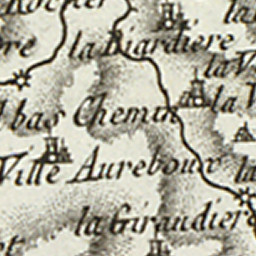 Rocher
la
la Biardiere
re
la V
bas Chemin
la V
Ville Aureboux
la
la Giraudiere
ot